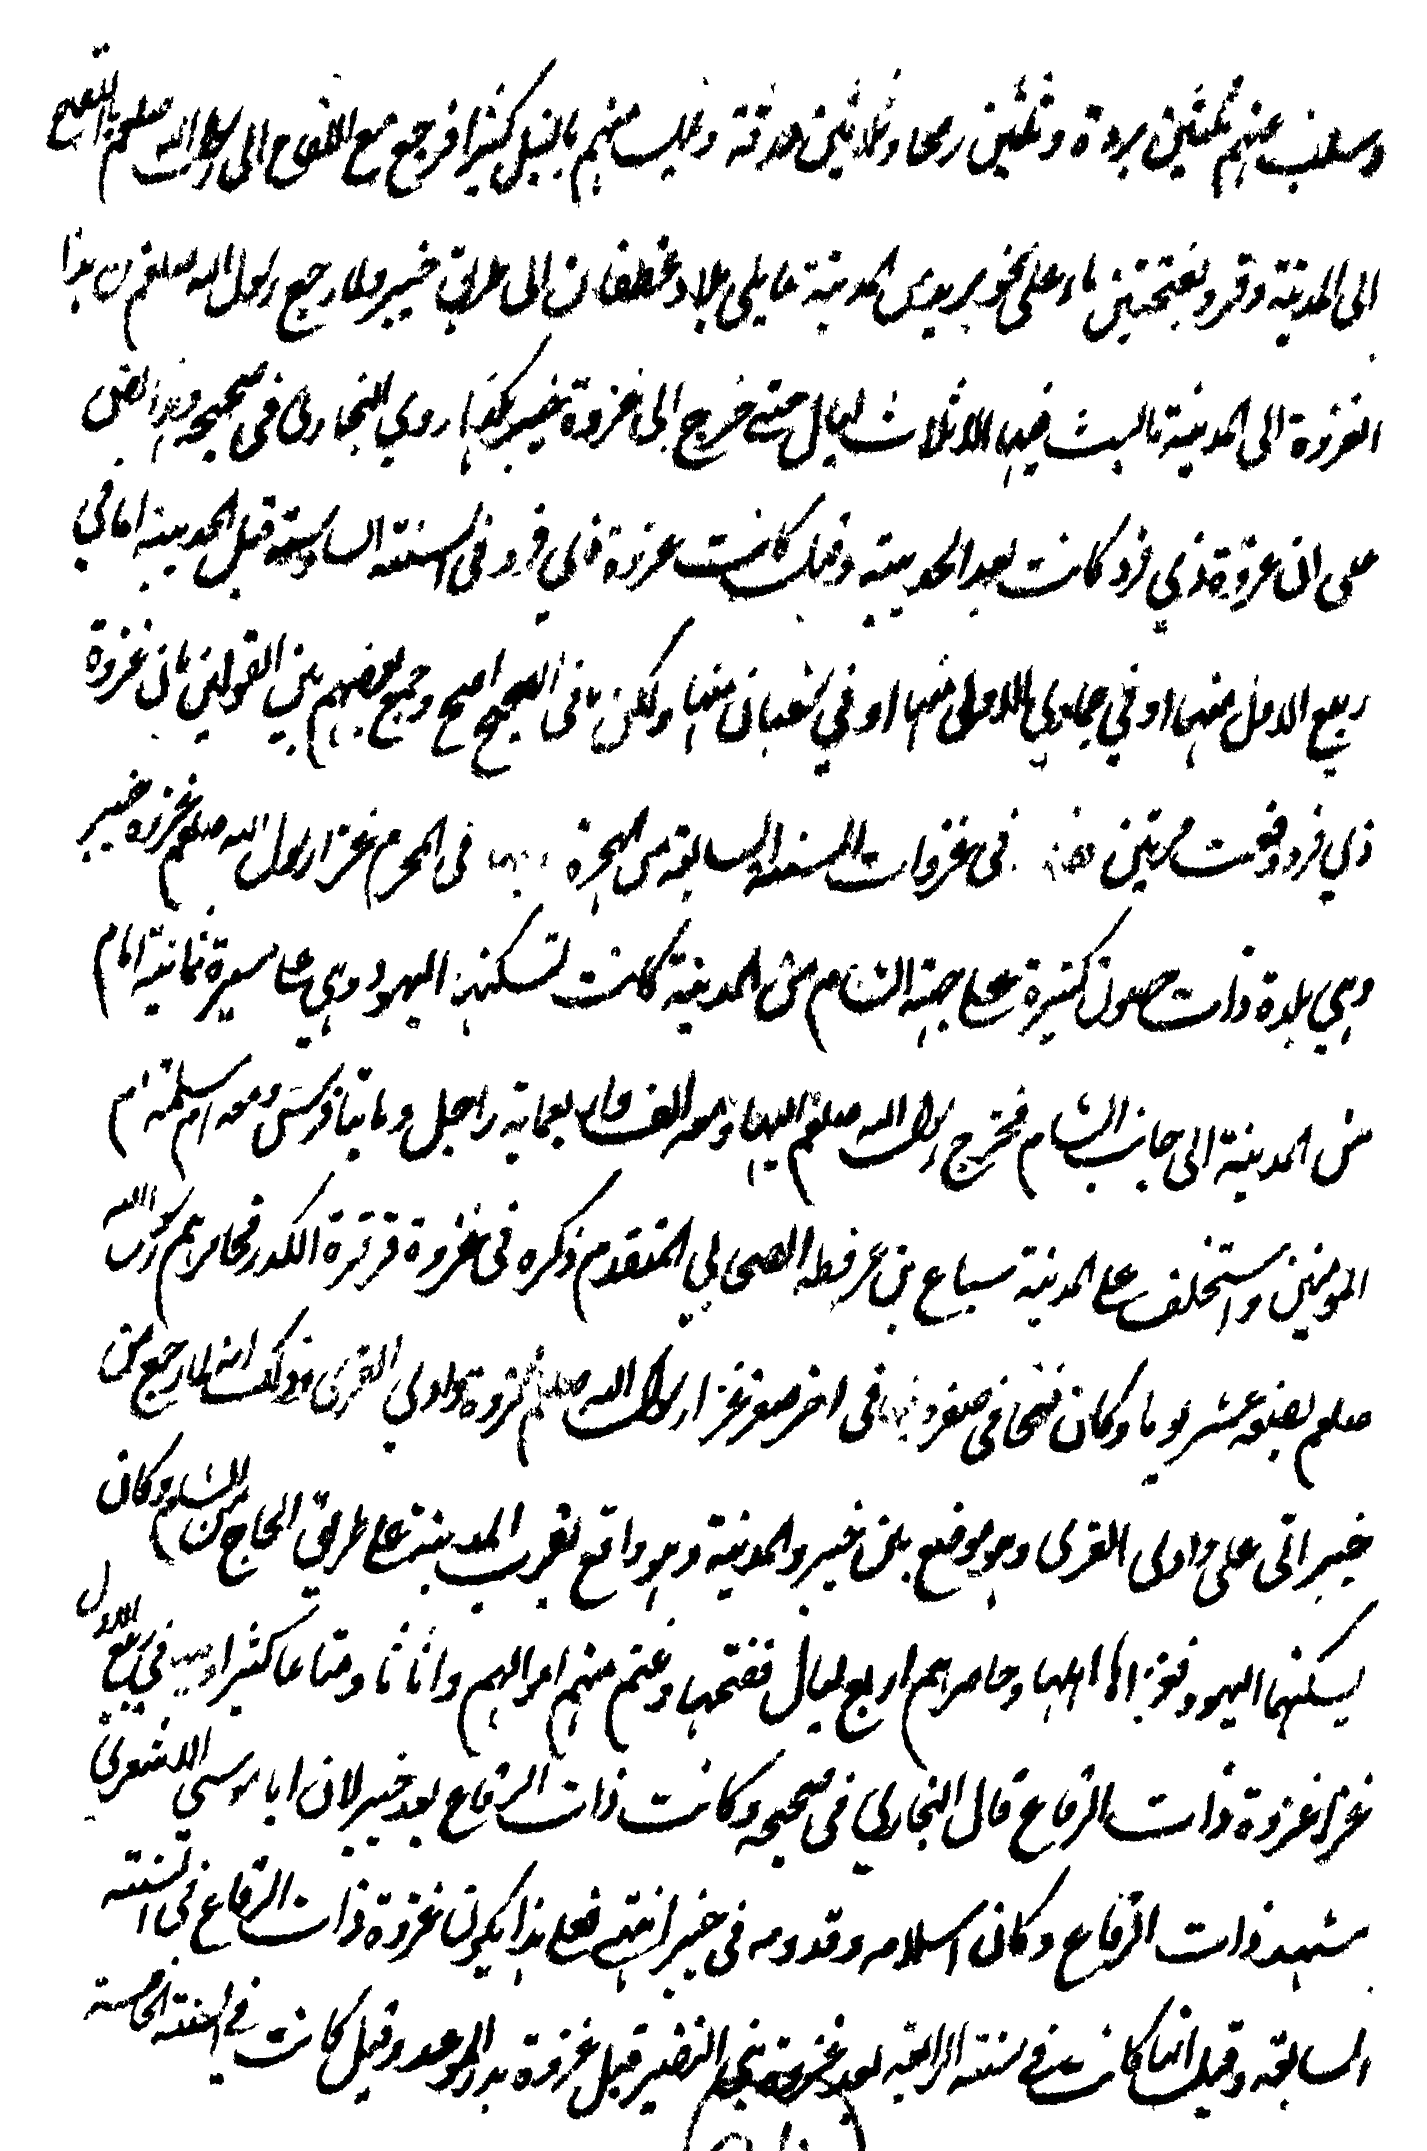 وسلب منهم ثلثين بردة وثلثين رمحا وثلاثين درقة وقتل منهم بالنبل كثيرا فرجع مع اللقاح الى رسول الله صلعم
الى المدينة وقرد بفتحتين ماء على نحو بريد من المدينة مما يلي بلاد غطفان الى طريق خيبر ولما رجع رسول الله صلعم من هذا
الغزوة الى المدينة ما لبث فيها الا ثلاث ليال حتى خرج الى غزوة خيبر هكذا روي البخاري في صحيحه وهذا نص
على ان غزوة ذي قرد كانت بعد الحديبية وقيل كانت غزوة ذي قرد في السنة السادسة قبل الحديبية اما في
ربيع الاول منها او في جمادي الاولى منها او في شعبان منها ولكن ما في الصحيح اصح وجمع بعضهم بين القولين بان غزوة
ذي قرد وقعت مرتين في غزوات السنة السابعة من الهجرة في المحرم غزا رسول الله صلعم غزوة خيبر
وهي بلدة ذات حصون كثيرة على جهة الشام من المدينة كانت تسكنها اليهود وهي على مسيرة ثمانية ايام
من المدينة الى جانب الشام فخرج رسول الله صلعم اليها ومعه الف واربعمائة راجل ومايتا فرس ومعه ام سلمة ام
المومنين واستخلف على المدينة سباع بن عرفطه الصحابي المتقدم ذكره في غزوة قرقرة الكدر فحاصرهم رسول الله
صلعم بضعة عشر يوما وكان فتحها في صفر وفيها في اخر صفر غزا رسول الله صلعم غزوة وادي القرى وذلك انه لما رجع من
خيبر اتى على وادي القرى وهو موضع بين خيبر والمدينة وهو واقع بقرب المدينة على طريق الحاج من الشام وكان
يسكنها اليهود فوجد اهلها وحاصرهم اربع ليال ففتحها وغنم منهم اموالهم واثاثا ومتاعا كثيرا وفيها في ربيع الاول
غزا غزوة ذات الرقاع قال البخاري في صحيحه وكانت ذات الرقاع بعد خيبر لان ابا موسى الاشعري
شهد ذات الرقاع وكان اسلامه وقدومه في خيبر انتهى فعلى هذا يكون غزوة ذات الرقاع في السنة
السابعة وقيل انها كانت في سنة الرابعة بعد غزوة بني النضير قبل غزوة بدر الموعد وقيل كانت في السنة الخامسة